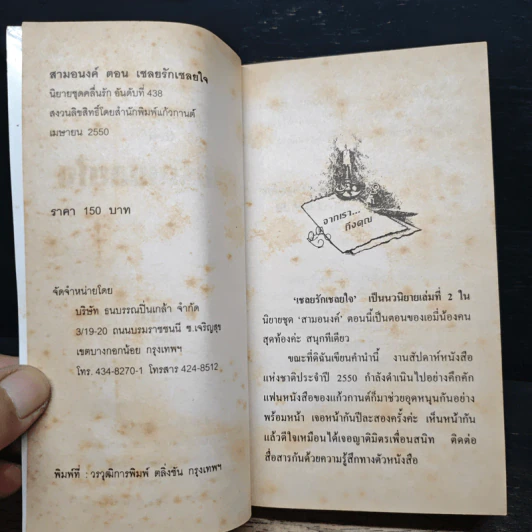 สามอนงค์ ตอน เชลยรักเชลยใจ
นิยายชุดคลื่นรัก อันดับที่ 438
สงวนลิขสิทธิ์โดยสำนักพิมพ์แก้วกานต์
เมษายน 2550
ราคา 150 บาท
จัดจำหน่ายโดย
บริษัท ธนบรรณปิ่นเกล้า จำกัด
3/19-20 ถนนบรมราชชนนี ซ.เจริญสุข
เขตบางกอกน้อย กรุงเทพฯ
โทร. 434-8270-1 โทรสาร 424-8512
พิมพ์ที่ : วรวุฒิการพิมพ์ ตลิ่งชัน กรุงเทพฯ
จากเรา...
ถึงคุณ
'เชลยรักเชลยใจ' เป็นนวนิยายเล่มที่ 2 ใน
นิยายชุด 'สามอนงค์' ตอนนี้เป็นตอนของเอม์น้องคน
สุดท้องค่ะ สนุกทีเดียว
ขณะที่ดิฉันเขียนคำนำนี้ งานสัปดาห์หนังสือ
แห่งชาติประจำปี 2550 กำลังดำเนินไปอย่างคึกคัก
แฟนหนังสือของแก้วกานต์ก็มาช่วยอุดหนุนกันอย่าง
พร้อมหน้า เจอหน้ากันปีละสองครั้งค่ะ เห็นหน้ากัน
แล้วดีใจเหมือนได้เจอญาติมิตรเพื่อนสนิท ติดต่อ
สื่อสารกันด้วยความรู้สึกทางตัวหนังสือ